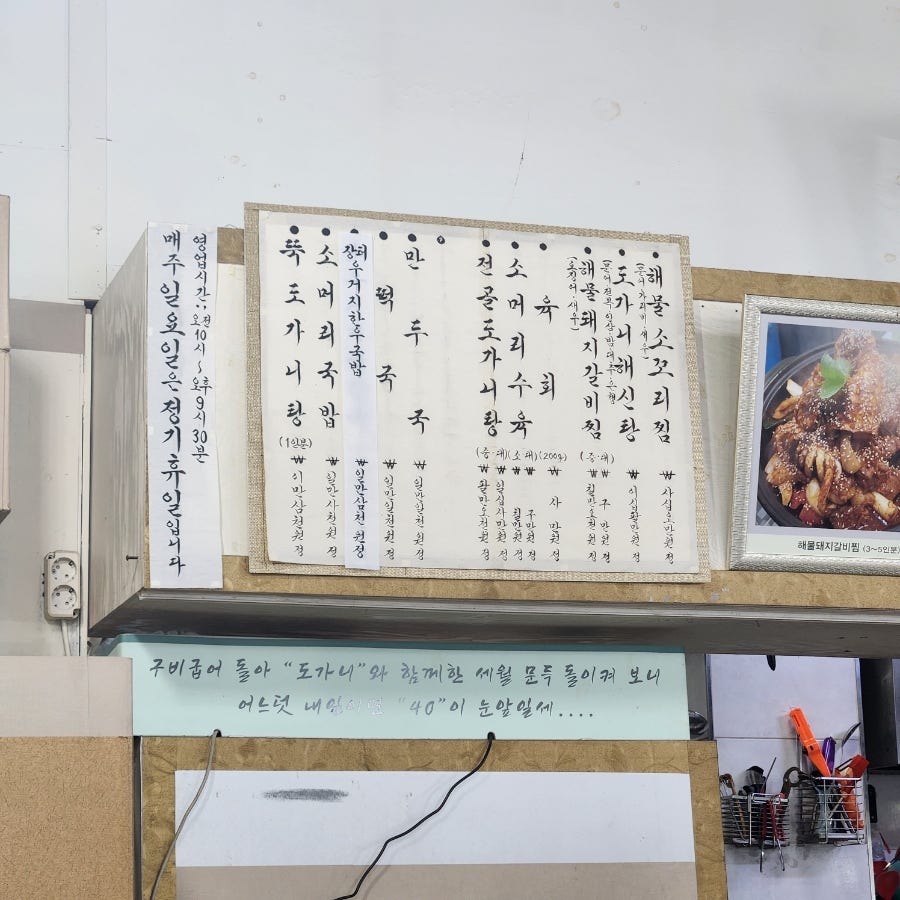 영업시간: 오전 10시 ~ 오후 9시 30분
매주 일요일은 정기휴일입니다
해물소꼬리찜 ₩
(문어.가리비.새우)
도가니해신탕 ₩
(문어.전복.인삼.밤.대추.은행)
해물돼지갈비찜 (중.대) ₩구만원정
(오징어.새우) ₩칠만오천원정
육회 (200g) ₩사만원정
소머리수육 (소.대) ₩구만원정
₩칠만원정
전골도가니탕 (중.대) ₩일십사만원정
₩
만두국 ₩일만일천원정
떡국 ₩일만일천원정
장터우거지한우국밥 ₩일만삼천원정
소머리국밥 ₩일만사천원정
뚝도가니탕 (1인분) ₩이만삼천원정
해물돼지갈비찜 (3~5인분)
구비굽어 돌아 "도가니"와 함께한 세월 문득 돌이켜 보니
어느덧 내일이면 "40"이 눈앞일세....